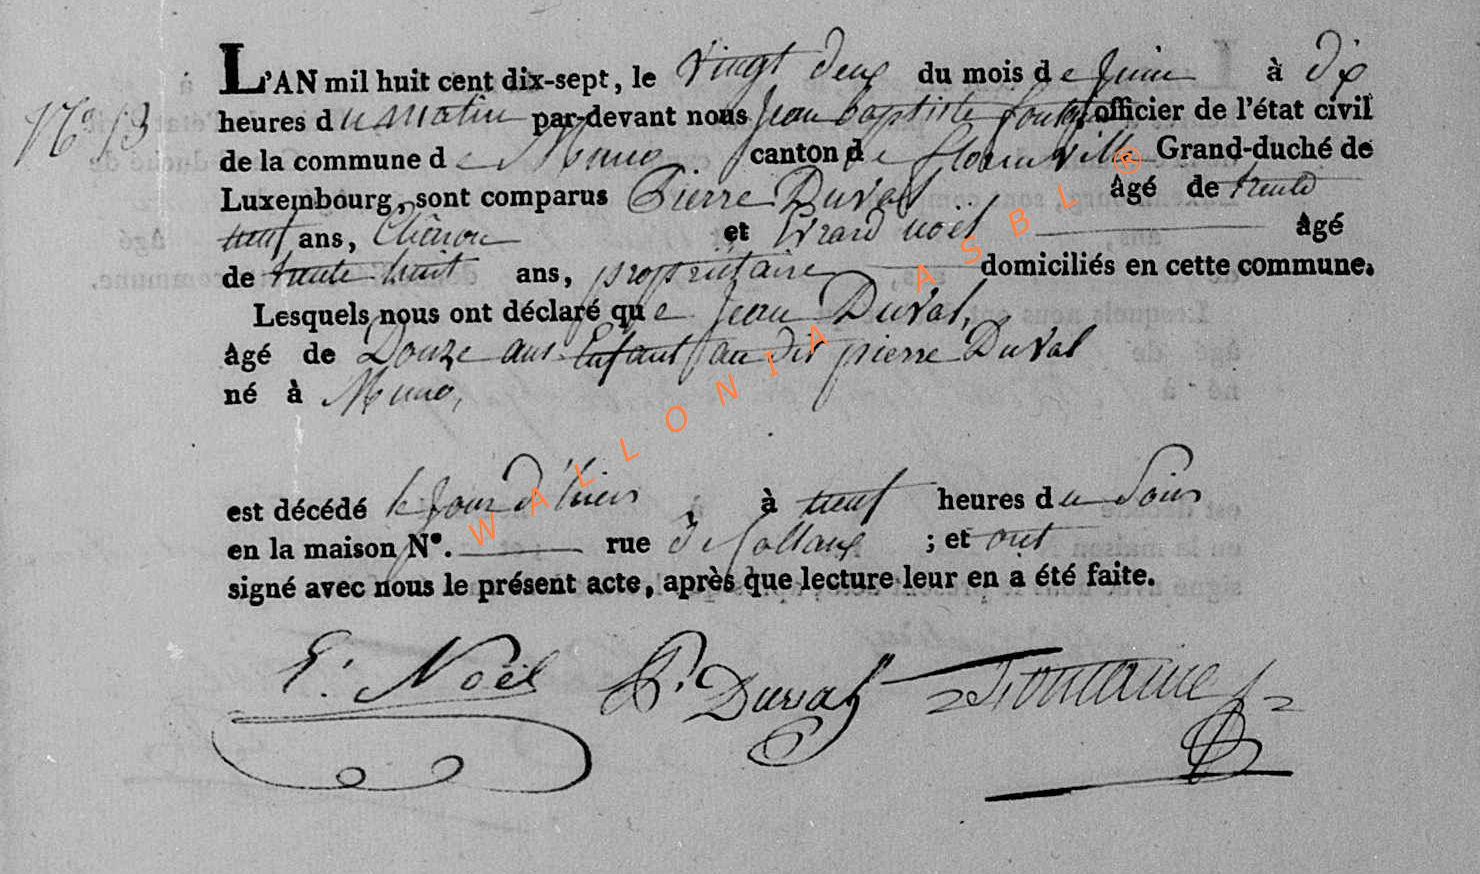 N.º 13
L'AN mil huit cent dix-sept, le vingt deux du mois de juin à dix
heures du matin par-devant nous jean baptiste officier de l'état civil
de la commune de Muno canton de florenville Grand-duché de
Luxembourg, sont comparus Pierre Duval âgé de trente
neuf ans, et Erard noël âgé
de trente huit ans, propriétaire domiciliés en cette commune.
Lesquels nous ont déclaré que Jean Duval,
âgé de Douze ans Enfant au dit pierre Duval
né à Muno,
est décédé le jour d'hier à neuf heures du Soir
en la maison N°. rue de ; et ont
signé avec nous le présent acte, après que lecture leur en a été faite.
E. Noël P. Duval Fontaine
WALLONIA ASBL ®